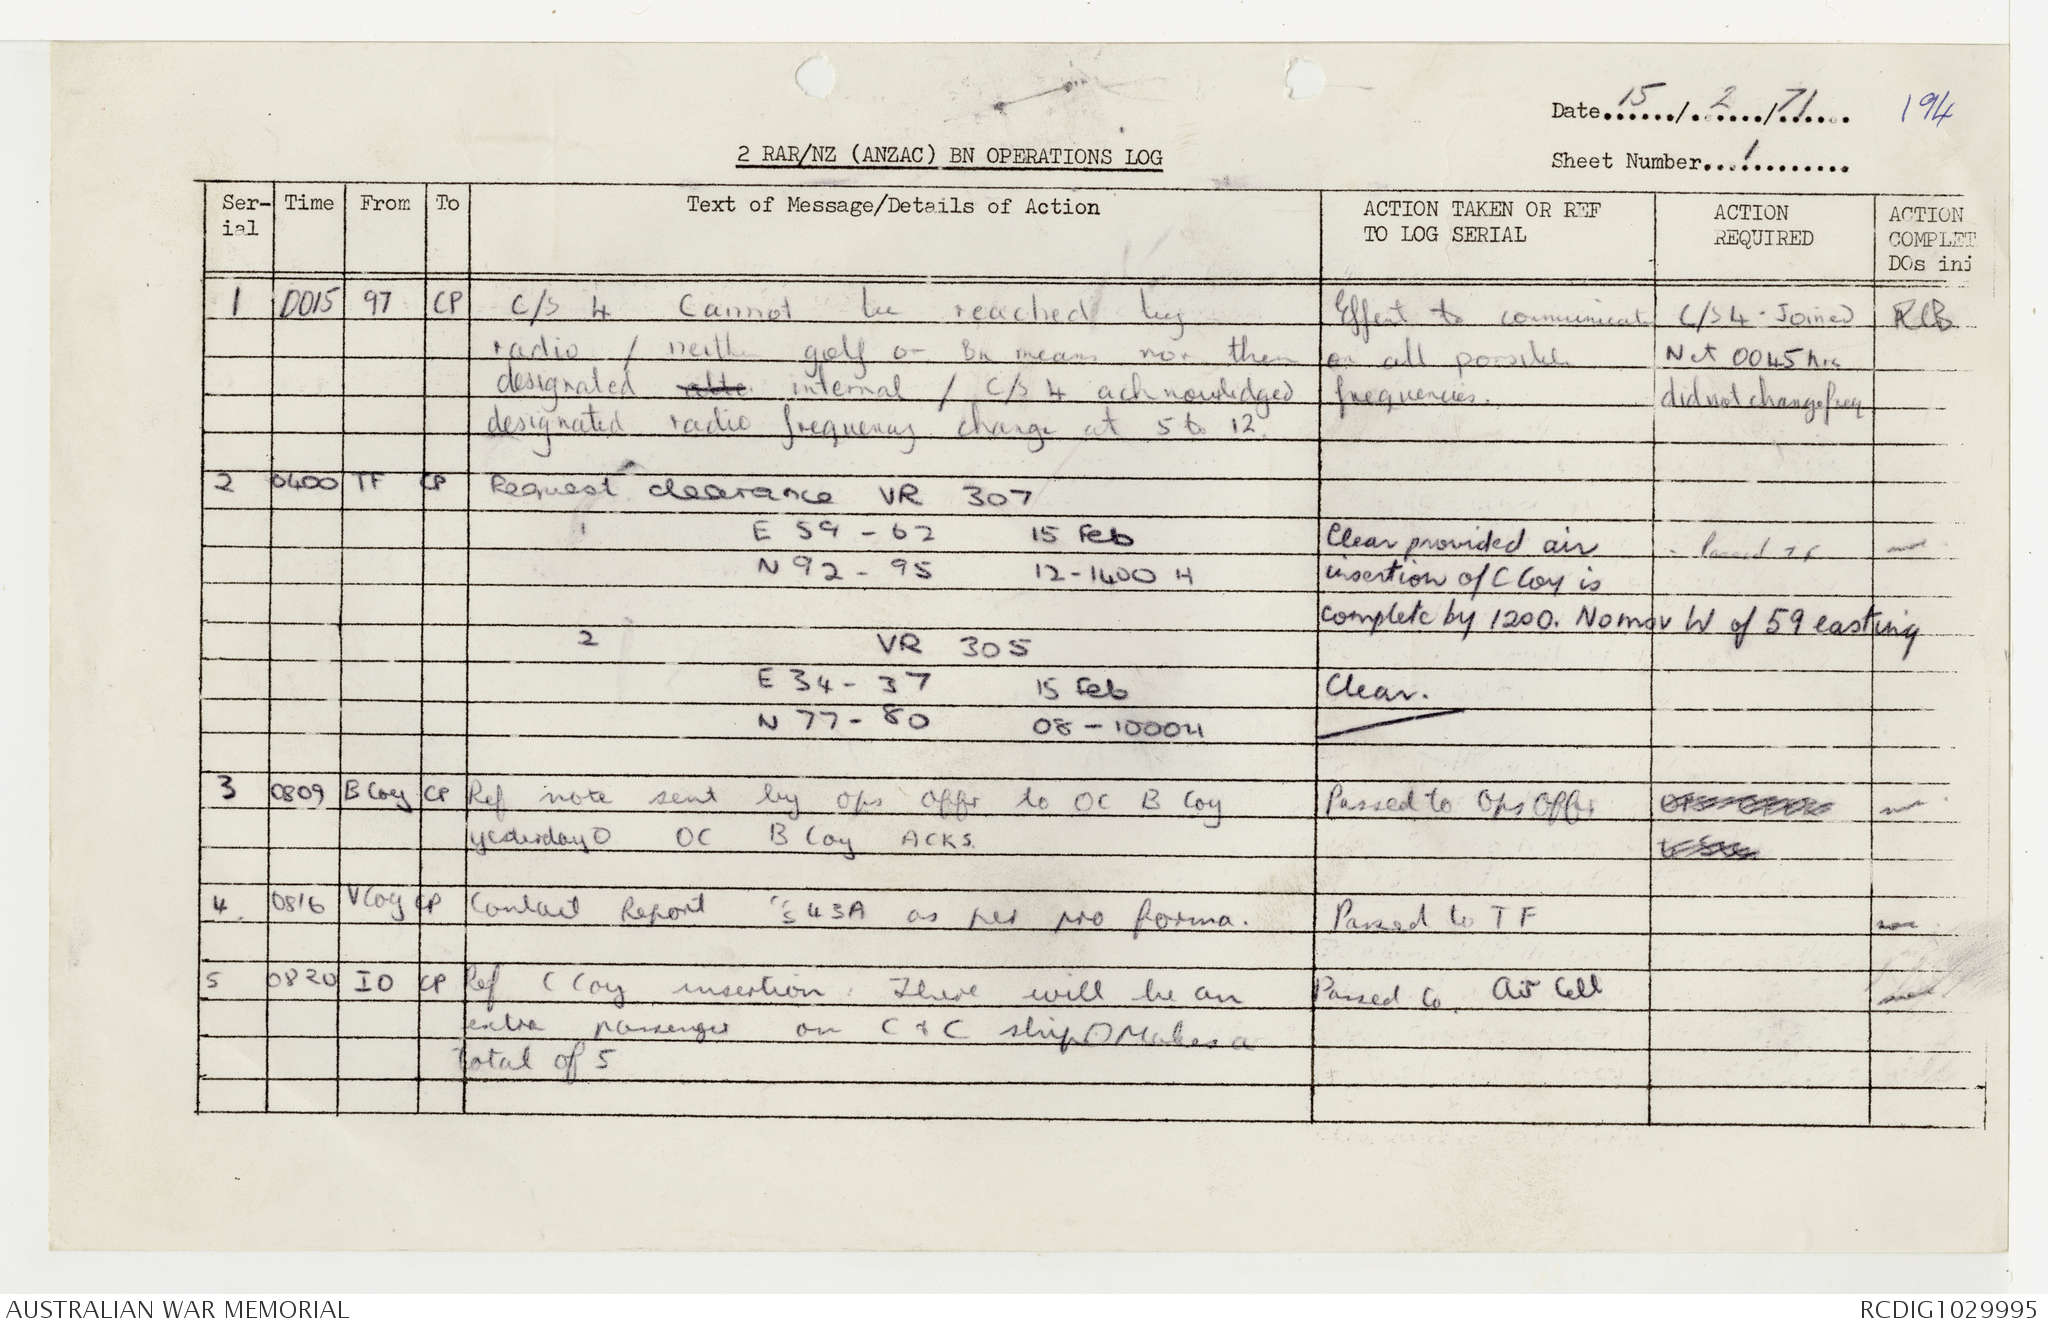 Date 15/2/71 194
2 RAR/NZ (ANZAC) BN OPERATIONS LOG
Sheet Number 1
Ser- Time From To Text of Message/Details of Action ACTION TAKEN OR REF ACTION ACTION
ial TO LOG SERIAL REQUIRED COMPLET
DOs ini
1 0015 97 CP C/S 4 Cannot be reached by Effort to communicate C/S 4 - Joined RCB
radio / neither golf or Bn means nor then on all possible Net 0045 hrs
designated internal / C/S 4 acknowledged frequencies. did not change freq
designated radio frequency change at 5 to 12.
2 0400 TF CP Request clearance VR 307
1 E 59 - 62 15 Feb Clear provided air - Passed TF
N 92 - 95 12-1400 H insertion of C Coy is
complete by 1200. No mov W of 59 easting
2 VR 305
E 34 - 37 15 Feb Clear.
N 77 - 80 08 - 1000H
3 0809 B Coy CP Ref note sent by Ops Offr to OC B Coy Passed to Ops Offr
yesterday O OC B Coy ACKS.
4. 0816 V Coy CP Contact Report C/S 43A as per pro forma. Passed to TF
5 0820 IO CP Ref C Coy insertion. There will be an Passed to Air Cell
extra passenger on C & C ship O Makes a
total of 5
AUSTRALIAN WAR MEMORIAL RCDIG1029995